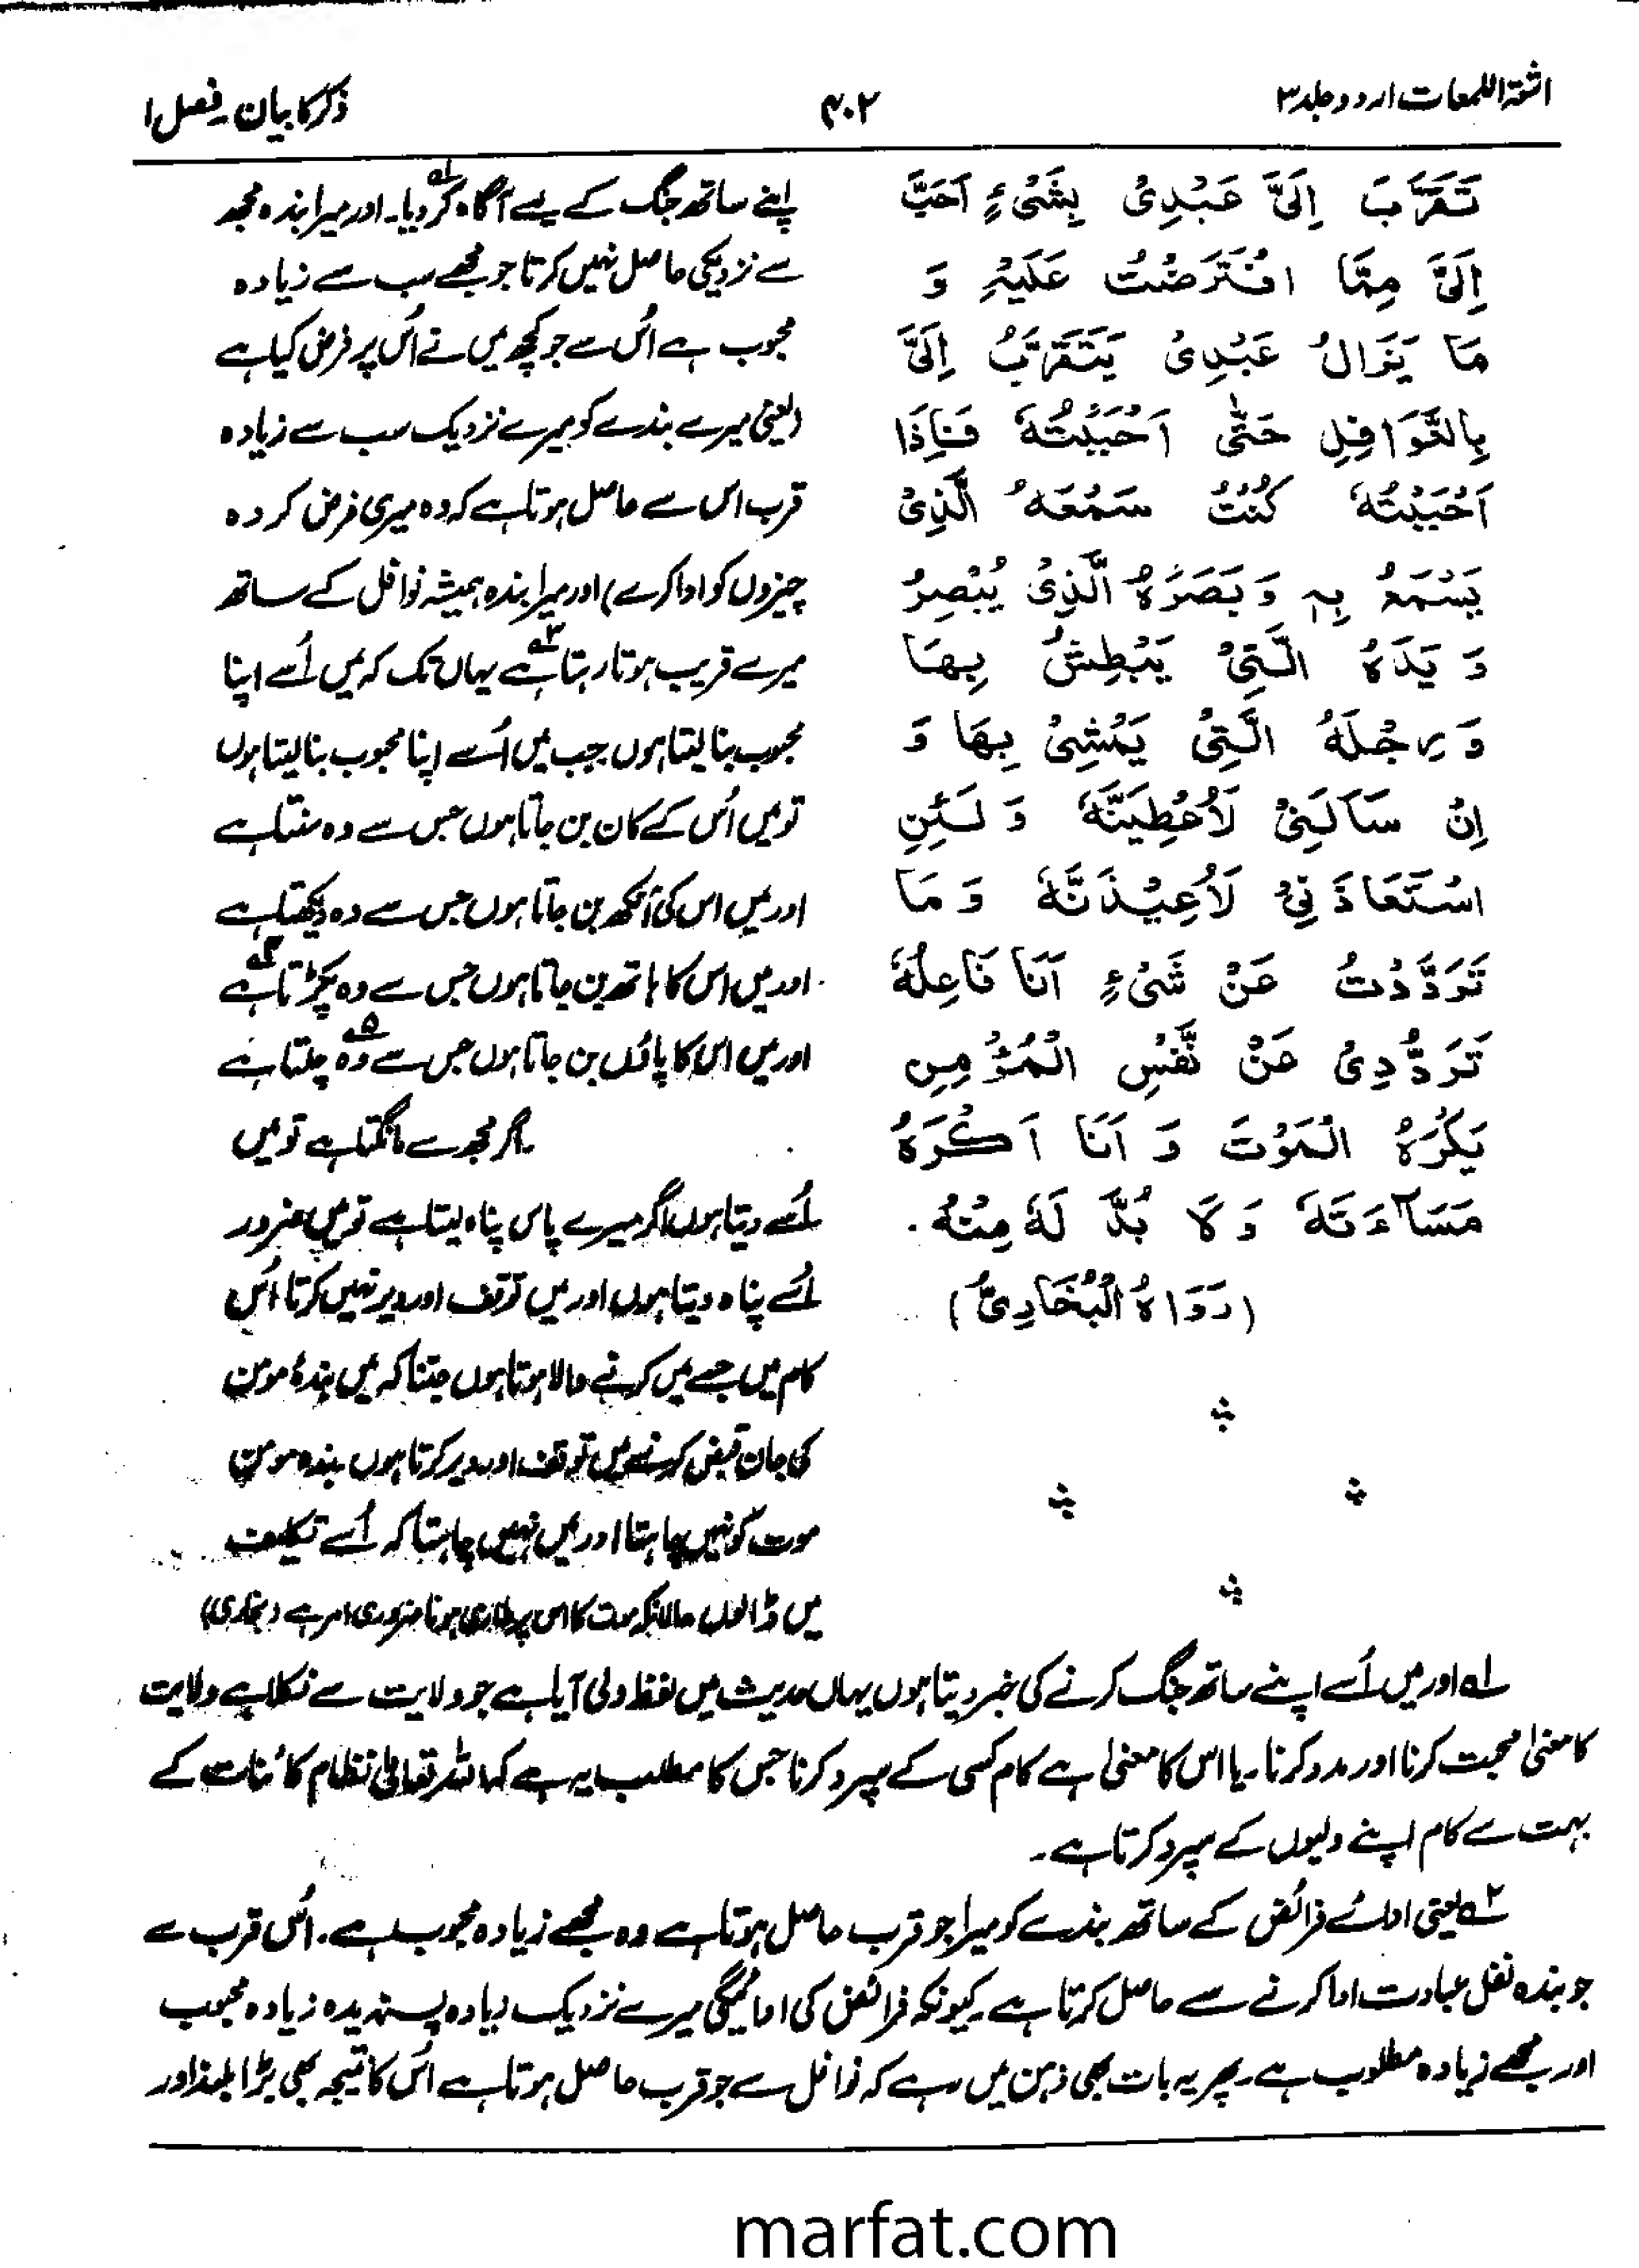 اشعۃ اللمعات اردو جلد ۳
۴۰۲
ذکر کا بیان۔ فصل ۱
تَقَرَّبَ اِلَیَّ عَبْدِیْ بِشَیْءٍ اَحَبَّ
اِلَیَّ مِمَّا افْتَرَضْتُ عَلَیْہِ وَ
مَا یَزَالُ عَبْدِیْ یَتَقَرَّبُ اِلَیَّ
بِالنَّوَافِلِ حَتّٰی اَحْبَبْتُہٗ فَاِذَا
اَحْبَبْتُہٗ کُنْتُ سَمْعَہُ الَّذِیْ
یَسْمَعُ بِہٖ وَ بَصَرَہُ الَّذِیْ یُبْصِرُ
وَ یَدَہُ الَّتِیْ یَبْطِشُ بِھَا
وَ رِجْلَہُ الَّتِیْ یَمْشِیْ بِھَا وَ
اِنْ سَاَلَنِیْ لَاُعْطِیَنَّہٗ وَ لَئِنِ
اسْتَعَاذَنِیْ لَاُعِیْذَنَّہٗ وَ مَا
تَرَدَّدْتُ عَنْ شَیْءٍ اَنَا فَاعِلُہٗ
تَرَدُّدِیْ عَنْ نَّفْسِ الْمُؤْمِنِ
یَکْرَہُ الْمَوْتَ وَ اَنَا اَکْرَہُ
مَسَآءَتَہٗ وَ لَا بُدَّ لَہٗ مِنْہُ۔
(رَوَاہُ الْبُخَارِیُّ)
اپنے ساتھ جنگ کے لیے آگاہ کر دیا۔ ۱ اور میرا بندہ مجھ
سے نزدیکی حاصل نہیں کرتا جو مجھے سب سے زیادہ
محبوب ہے اُس سے جو کچھ میں نے اُس پر فرض کیا ہے
(یعنی میرے بندے کو میرے نزدیک سب سے زیادہ
قرب اس سے حاصل ہوتا ہے کہ وہ میری فرض کردہ
چیزوں کو ادا کرے) اور میرا بندہ ہمیشہ نوافل کے ساتھ
میرے قریب ہوتا رہتا ہے ۳ یہاں تک کہ میں اُسے اپنا
محبوب بنا لیتا ہوں جب میں اُسے اپنا محبوب بنا لیتا ہوں
تو میں اُس کے کان بن جاتا ہوں جس سے وہ سنتا ہے
اور میں اس کی آنکھ بن جاتا ہوں جس سے وہ دیکھتا ہے
اور میں اس کا ہاتھ بن جاتا ہوں جس سے وہ پکڑتا ہے ۴
اور میں اس کا پاؤں بن جاتا ہوں جس سے وہ چلتا ہے ۵
اگر مجھ سے مانگتا ہے تو میں
اُسے دیتا ہوں اگر میرے پاس پناہ لیتا ہے تو میں ضرور
اُسے پناہ دیتا ہوں اور میں توقف اور دیر نہیں کرتا اُس
کام میں جسے میں کرنے والا ہوتا ہوں جتنا کہ میں بندۂ مومن
کی جان قبض کرنے میں توقف اور دیر کرتا ہوں بندہ مومن
موت کو نہیں چاہتا اور میں نہیں چاہتا کہ اُسے تکلیف
میں ڈالوں حالانکہ موت کا اس پر طاری ہونا ضروری امر ہے (بخاری)
۱ اور میں اُسے اپنے ساتھ جنگ کرنے کی خبر دیتا ہوں یہاں حدیث میں لفظ ولی آیا ہے جو ولایت سے نکلا ہے ولایت
کا معنیٰ محبت کرنا اور مدد کرنا۔ یا اس کا معنیٰ ہے کام کسی کے سپرد کرنا جس کا مطلب یہ ہے کہ اللہ تعالیٰ نظام کائنات کے
بہت سے کام اپنے ولیوں کے سپرد کرتا ہے۔
۲ یعنی ادائے فرائض کے ساتھ بندے کو میرا جو قرب حاصل ہوتا ہے وہ مجھے زیادہ محبوب ہے۔ اُس قرب سے
جو بندہ نفل عبادت ادا کرنے سے حاصل کرتا ہے۔ کیونکہ فرائض کی ادائیگی میرے نزدیک زیادہ پسندیدہ زیادہ محبوب
اور مجھے زیادہ مطلوب ہے۔ پھر یہ بات بھی ذہن میں رہے کہ نوافل سے جو قرب حاصل ہوتا ہے اُس کا نتیجہ بھی بڑا بلند اور
marfat.com